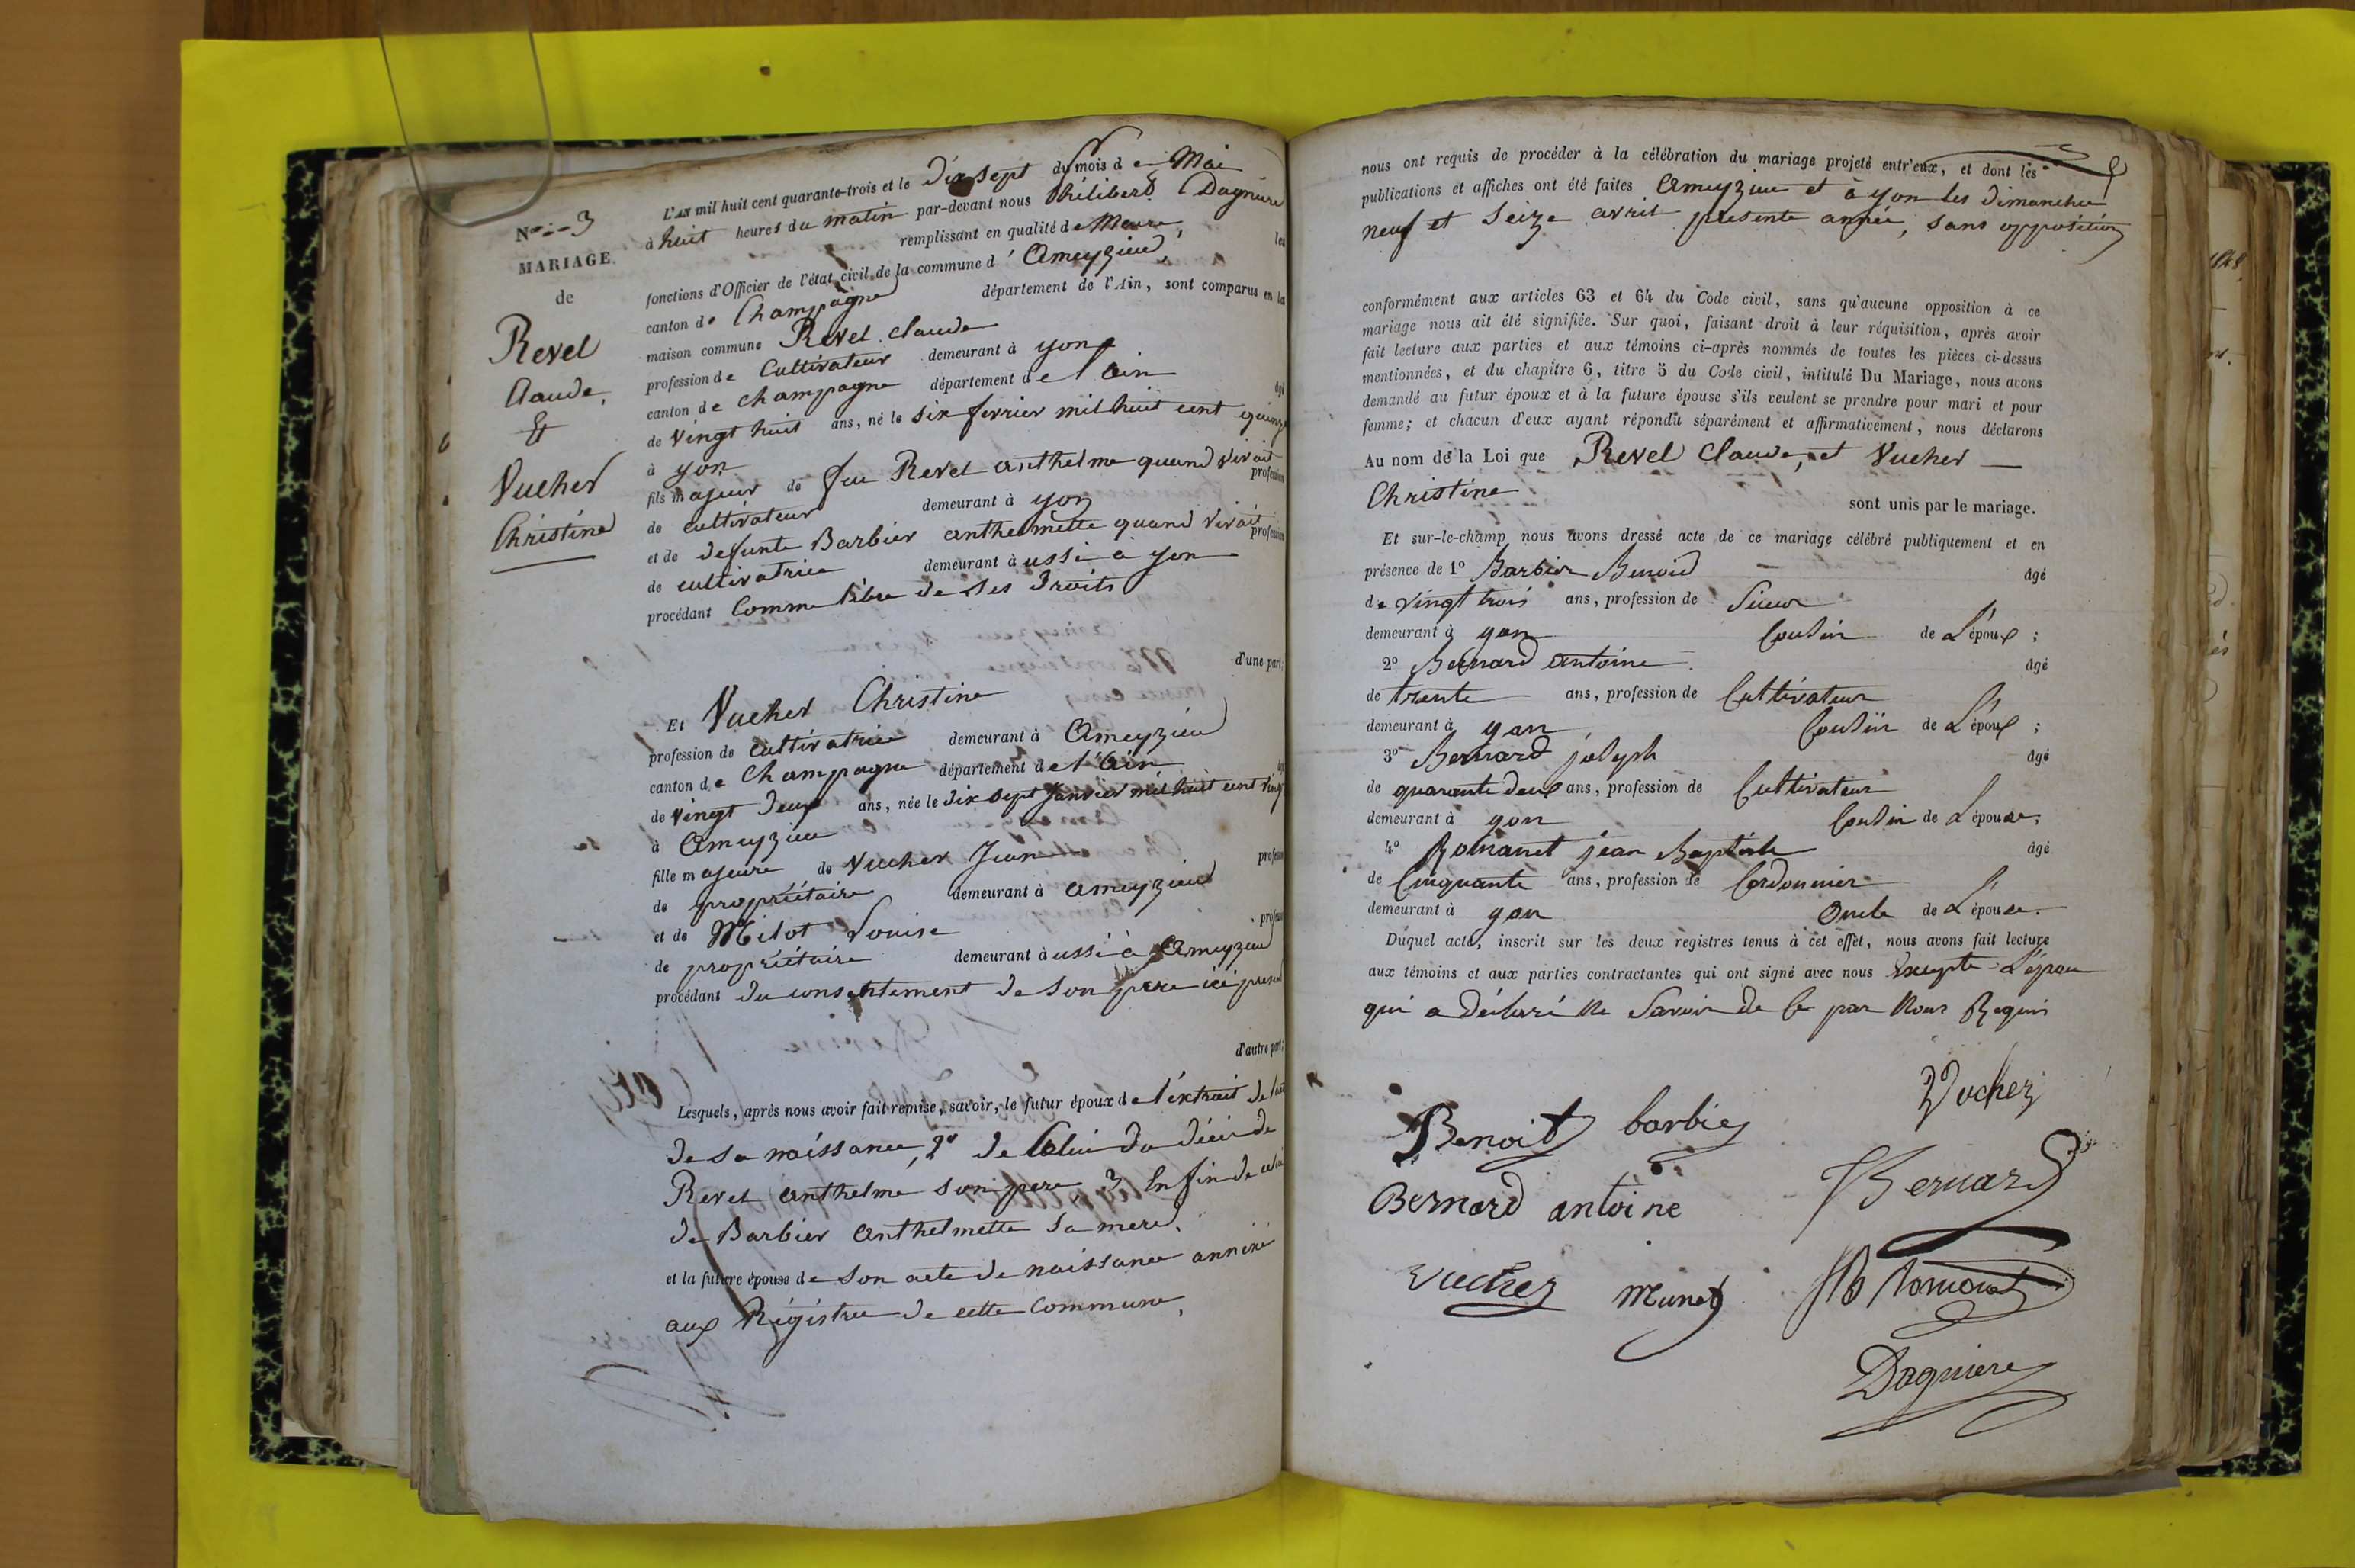 N° 3
MARIAGE
de
Revel
Claude,
&
Vucher
Christine
L'AN mil huit cent quarante-trois et le dix sept du mois de Mai
à huit heures du matin par-devant nous Philibert Dagnière
remplissant en qualité de Maire, les
fonctions d'Officier de l'état civil de la commune d'Ameyzieu,
canton de Champagne département de l'Ain, sont comparus en la
maison commune Revel Claude
profession de Cultivateur demeurant à yon
canton de champagne département de l'ain âgé
de Vingt huit ans, né le six fevrier mil huit cent quinze
à yon
fils majeur de feu Revel anthelme quand vivait profession
de cultivateur demeurant à yon
et de defunte Barbier anthelmette quand vivait profession
de cultivatrice demeurant à ussi à yon
procédant Comme libre de ses droits
d'une part;
Et Vucher Christine
profession de cultivatrice demeurant à Ameyzieu
canton de Champagne département de l'Ain
de vingt deux ans, née le dix sept Janvier mil huit cent vingt
à Ameyzieu
fille majeure de Vucher Jean profession
de propriétaire demeurant à Ameyzieu
et de Milot Louise profession
de propriétaire demeurant à ussi à Ameyzieu
procédant du consentement de son pere ici present
d'autre part;
Lesquels, après nous avoir fait remise, savoir, le futur époux de l'extrait de l'acte
de sa naissance, 2° de Celui du décès de
Revel anthelme son pere, 3° Enfin de celui
de Barbier Anthelmette sa mere.
et la future épouse de son acte de naissance annéxé
aux Régistre de cette Commune,
nous ont requis de procéder à la célébration du mariage projeté entr'eux, et dont les
publications et affiches ont été faites Ameyzieu et à yon les dimanche
neuf et Seize avril presente année, sans opposition
conformément aux articles 63 et 64 du Code civil, sans qu'aucune opposition à ce
mariage nous ait été signifiée. Sur quoi, faisant droit à leur réquisition, après avoir
fait lecture aux parties et aux témoins ci-après nommés de toutes les pièces ci-dessus
mentionnées, et du chapitre 6, titre 5 du Code civil, intitulé Du Mariage, nous avons
demandé au futur époux et à la future épouse s'ils veulent se prendre pour mari et pour
femme; et chacun d'eux ayant répondu séparément et affirmativement, nous déclarons
Au nom de la Loi que Revel Claude, et Vucher
Christine
sont unis par le mariage.
Et sur-le-champ nous avons dressé acte de ce mariage célébré publiquement et en
présence de 1° Barbier Benoid âgé
de vingt trois ans, profession de
demeurant à yon Cousin de L'époux;
2° Bernard antoine âgé
de trente ans, profession de Cultivateur
demeurant à yon Cousin de L'époux;
3° Bernard joseph âgé
de quarante deux ans, profession de Cultivateur
demeurant à yon Cousin de L'épouse;
4° Romanet jean Baptiste âgé
de Cinquante ans, profession de Cordonnier
demeurant à yon Oncle de L'épouse.
Duquel acte, inscrit sur les deux registres tenus à cet effet, nous avons fait lecture
aux témoins et aux parties contractantes qui ont signé avec nous Excepté L'épou
qui a déclaré ne Savoir de Ce par Nous Requis
Vucher
Benoit barbier
Bernard
Bernard antoine
Vucher
JB Romanet
Dagniere